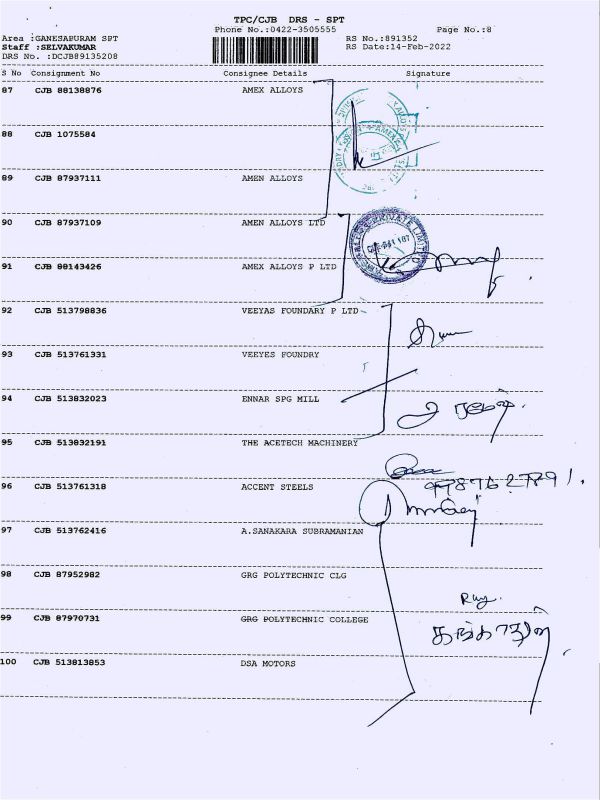 TPC/CJB DRS - SPT
Phone No.:0422-3505555 Page No.:8
Area :GANESAPURAM SPT RS No.:891352
Staff :SELVAKUMAR RS Date:14-Feb-2022
DRS No. :DCJB89135208
S No Consignment No Consignee Details Signature
87 CJB 88138876 AMEX ALLOYS
88 CJB 1075584
89 CJB 87937111 AMEN ALLOYS
90 CJB 87937109 AMEN ALLOYS LTD
91 CJB 88143426 AMEX ALLOYS P LTD
92 CJB 513798836 VEEYAS FOUNDARY P LTD
93 CJB 513761331 VEEYES FOUNDRY
94 CJB 513832023 ENNAR SPG MILL
95 CJB 513832191 THE ACETECH MACHINERY
96 CJB 513761318 ACCENT STEELS
97 CJB 513762416 A.SANAKARA SUBRAMANIAN
98 CJB 87952982 GRG POLYTECHNIC CLG
99 CJB 87970731 GRG POLYTECHNIC COLLEGE
100 CJB 513813853 DSA MOTORS